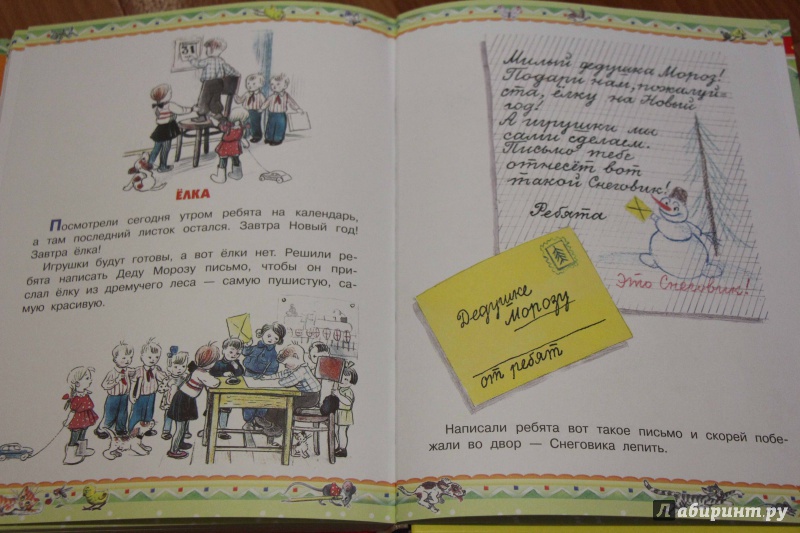 31
ЁЛКА
Посмотрели сегодня утром ребята на календарь,
а там последний листок остался. Завтра Новый год!
Завтра ёлка!
Игрушки будут готовы, а вот ёлки нет. Решили ре-
бята написать Деду Морозу письмо, чтобы он при-
слал ёлку из дремучего леса — самую пушистую, са-
мую красивую.
Милый дедушка Мороз!
Подари нам, пожалуй-
ста, ёлку на Новый
год!
А игрушки мы
сами сделаем.
Письмо тебе
отнесёт вот
такой Снеговик!
Ребята
Это Снеговик!
Дедушке
Морозу
от ребят
Написали ребята вот такое письмо и скорей побе-
жали во двор — Снеговика лепить.
Лабиринт.ру